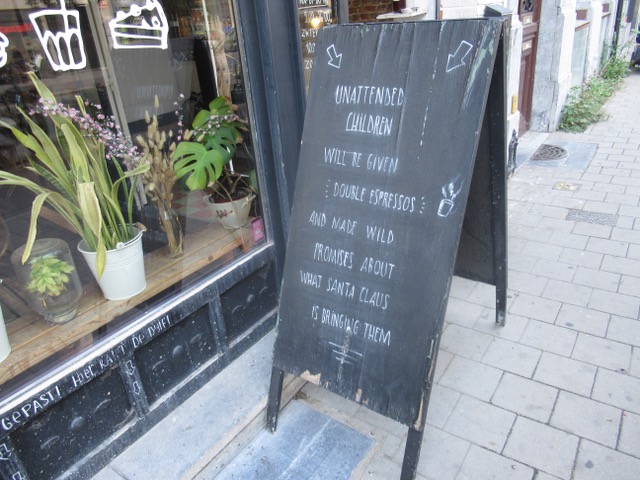 UNATTENDED
CHILDREN
WILL BE GIVEN
DOUBLE ESPRESSOS
AND MADE WILD
PROMISES ABOUT
WHAT SANTA CLAUS
IS BRINGING THEM
GEPAST! HIER KAN